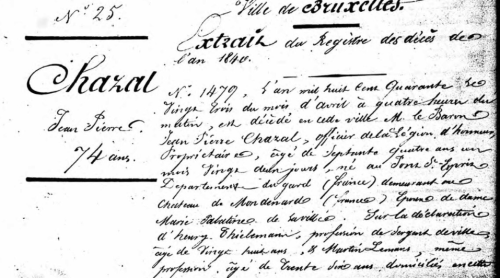 N° 25.
Ville de Bruxelles.
Extrait du Registre des décès de
l'an 1840.
Chazal
Jean Pierre
74 ans.
N. 1479, L'an mil huit cent Quarante le
Vingt trois du mois d'avril à quatre heures du
matin, est décédé en cette ville M. le Baron
Jean Pierre Chazal, officier de la Légion d'honneur
Propriétaire, âgé de Septante quatre ans un
mois Vingt deux jours, né au Pont St Esprit
Departement du gard (france) demeurant au
Chateau de Mondenard (france) Epoux de dame
Marie Palatine de Saville. Sur la déclaration
d'henry Thielemans, profession de Sergent de ville
âgé de Vingt huit ans, & Martin Lemans, même
profession, âgé de Trente Six ans, domiciliés en cette